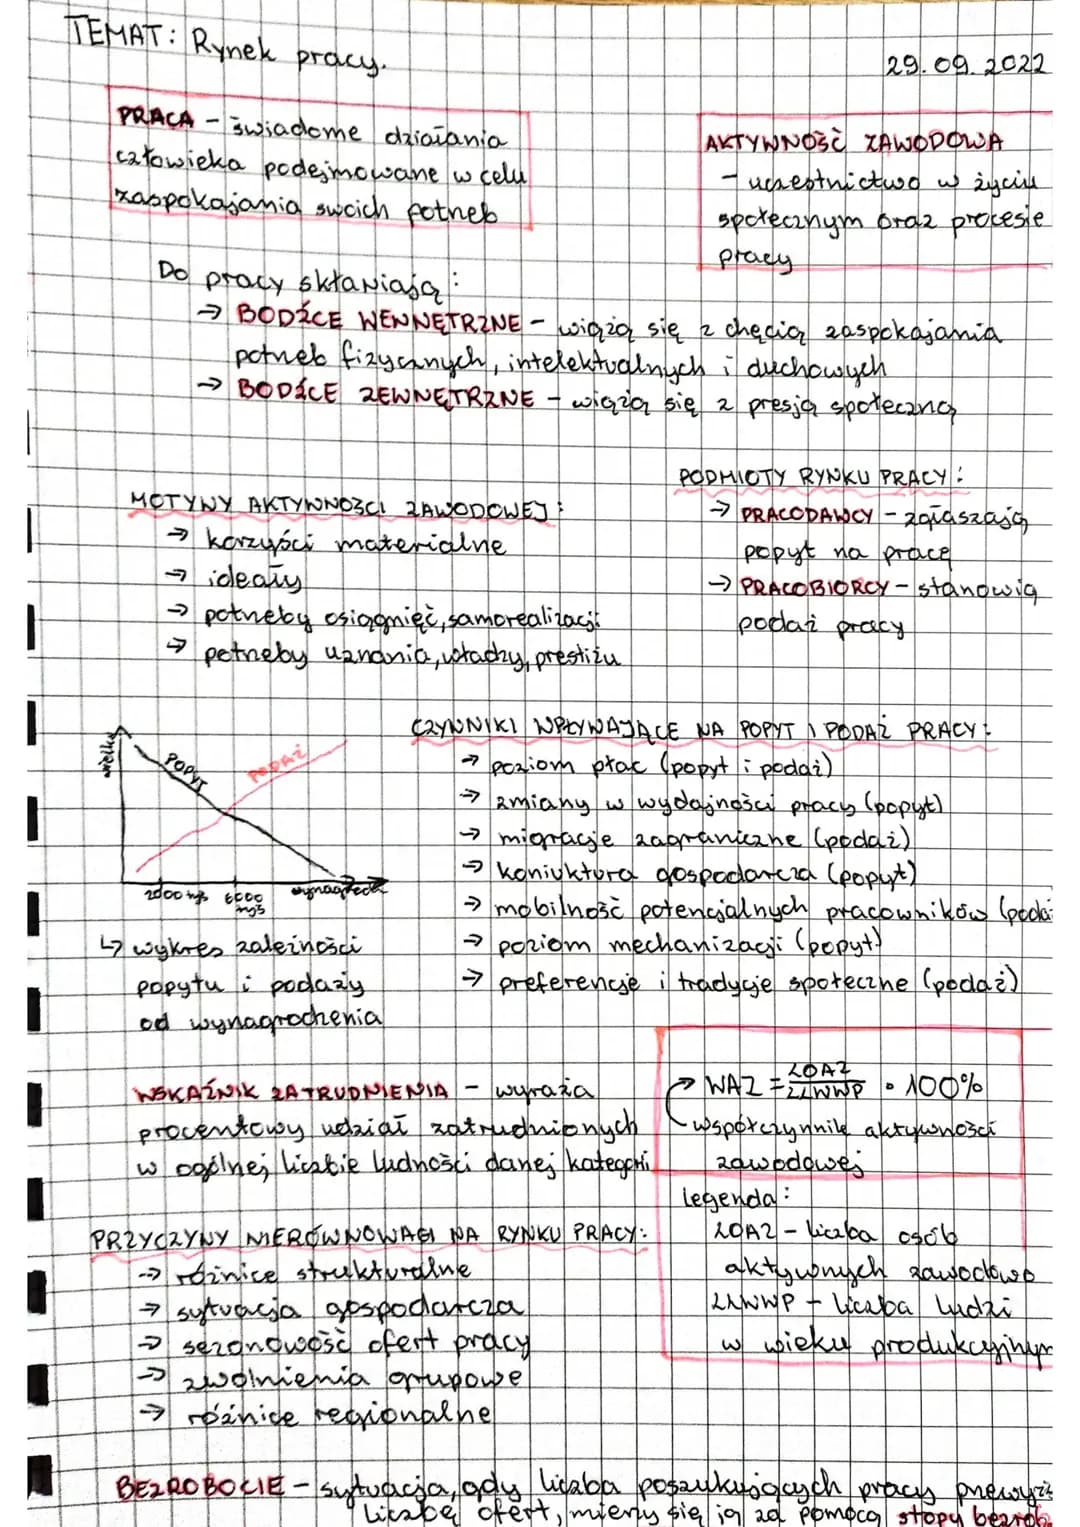 TEMAT: Rynek pracy.
29.09.2022
PRACA – świadome działania
człowieka podejmowane w celu
zaspokajania swoich potrzeb
AKTYWNOŚĆ ZAWODOWA
- uczestnictwo w życiu
społecznym oraz procesie
pracy
Do pracy skłaniają:
→ BODŹCE WEWNĘTRZNE – wiążą się z chęcią zaspokajania
potrzeb fizycznych, intelektualnych i duchowych
→ BODŹCE ZEWNĘTRZNE – wiążą się z presją społeczną
MOTYWY AKTYWNOŚCI ZAWODOWEJ:
→ korzyści materialne
→ ideały
→ potrzeby osiągnięć, samorealizacji
→ potrzeby uznania, władzy, prestiżu
PODMIOTY RYNKU PRACY:
→ PRACODAWCY – zgłaszają
popyt na pracę
→ PRACOBIORCY – stanowią
podaż pracy
wielkość
POPYT
PODAŻ
2000 mys 6000
mys
wynagrodz.
↳ wykres zależności
popytu i podaży
od wynagrodzenia
CZYNNIKI WPŁYWAJĄCE NA POPYT I PODAŻ PRACY:
→ poziom płac (popyt i podaż)
→ zmiany w wydajności pracy (popyt)
→ migracje zagraniczne (podaż)
→ koniuktura gospodarcza (popyt)
→ mobilność potencjalnych pracowników (podaż
→ poziom mechanizacji (popyt)
→ preferencje i tradycje społeczne (podaż)
WSKAŹNIK ZATRUDNIENIA – wyraża
procentowy udział zatrudnionych
w ogólnej liczbie ludności danej kategorii
→ WAZ = LOAZ/LLWWP • 100%
współczynnik aktywności
zawodowej
legenda:
LOAZ – liczba osób
aktywnych zawodowo
LLWWP – liczba ludzi
w wieku produkcyjnym
PRZYCZYNY NIERÓWNOWAGI NA RYNKU PRACY:
→ różnice strukturalne
→ sytuacja gospodarcza
→ sezonowość ofert pracy
→ zwolnienia grupowe
→ różnice regionalne
BEZROBOCIE – sytuacja, gdy liczba poszukujących pracy przewyż
liczbę ofert, mierzy się ją za pomocą stopy bezrob